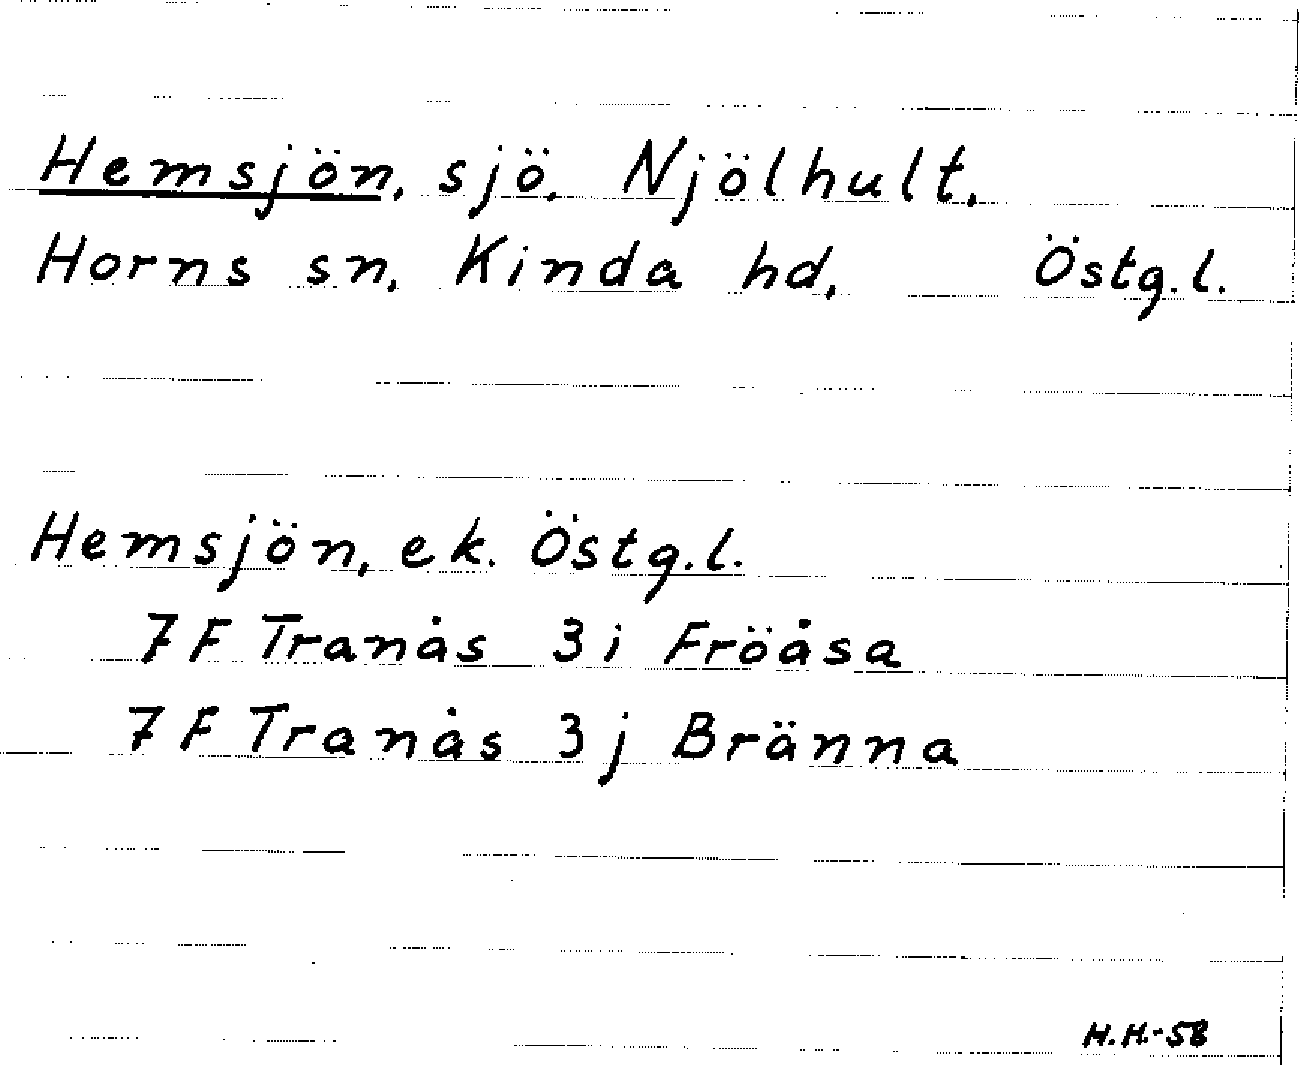 Hemsjön, sjö, Njölhult,
Horns sn, Kinda hd, Östg.l.
Hemsjön, ek. Östg.l.
7 F Tranås 3 i Fröåsa
7 F Tranås 3 j Bränna
H.H.-58